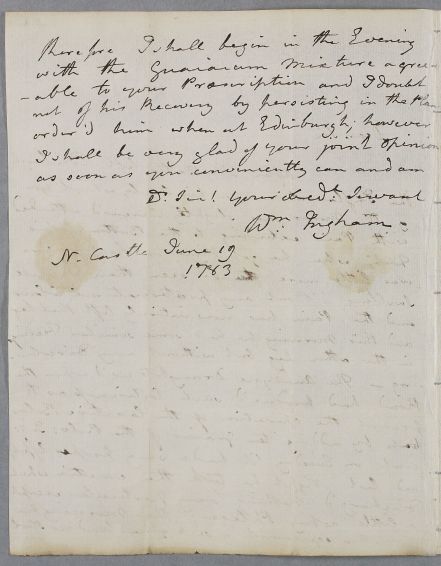 therefore I shall begin in the Evening
with the Guaiacum mixture agree-
-able to your Prescription and I doubt
not of his Recovery by persisting in the Plan
order'd him when at Edinburgh; however
I shall be very glad of your joint opinion
as soon as you conveniently can and am
Dr. Sir! your obedt. Servant
Wm. Ingham -
N. Castle June 19
1783